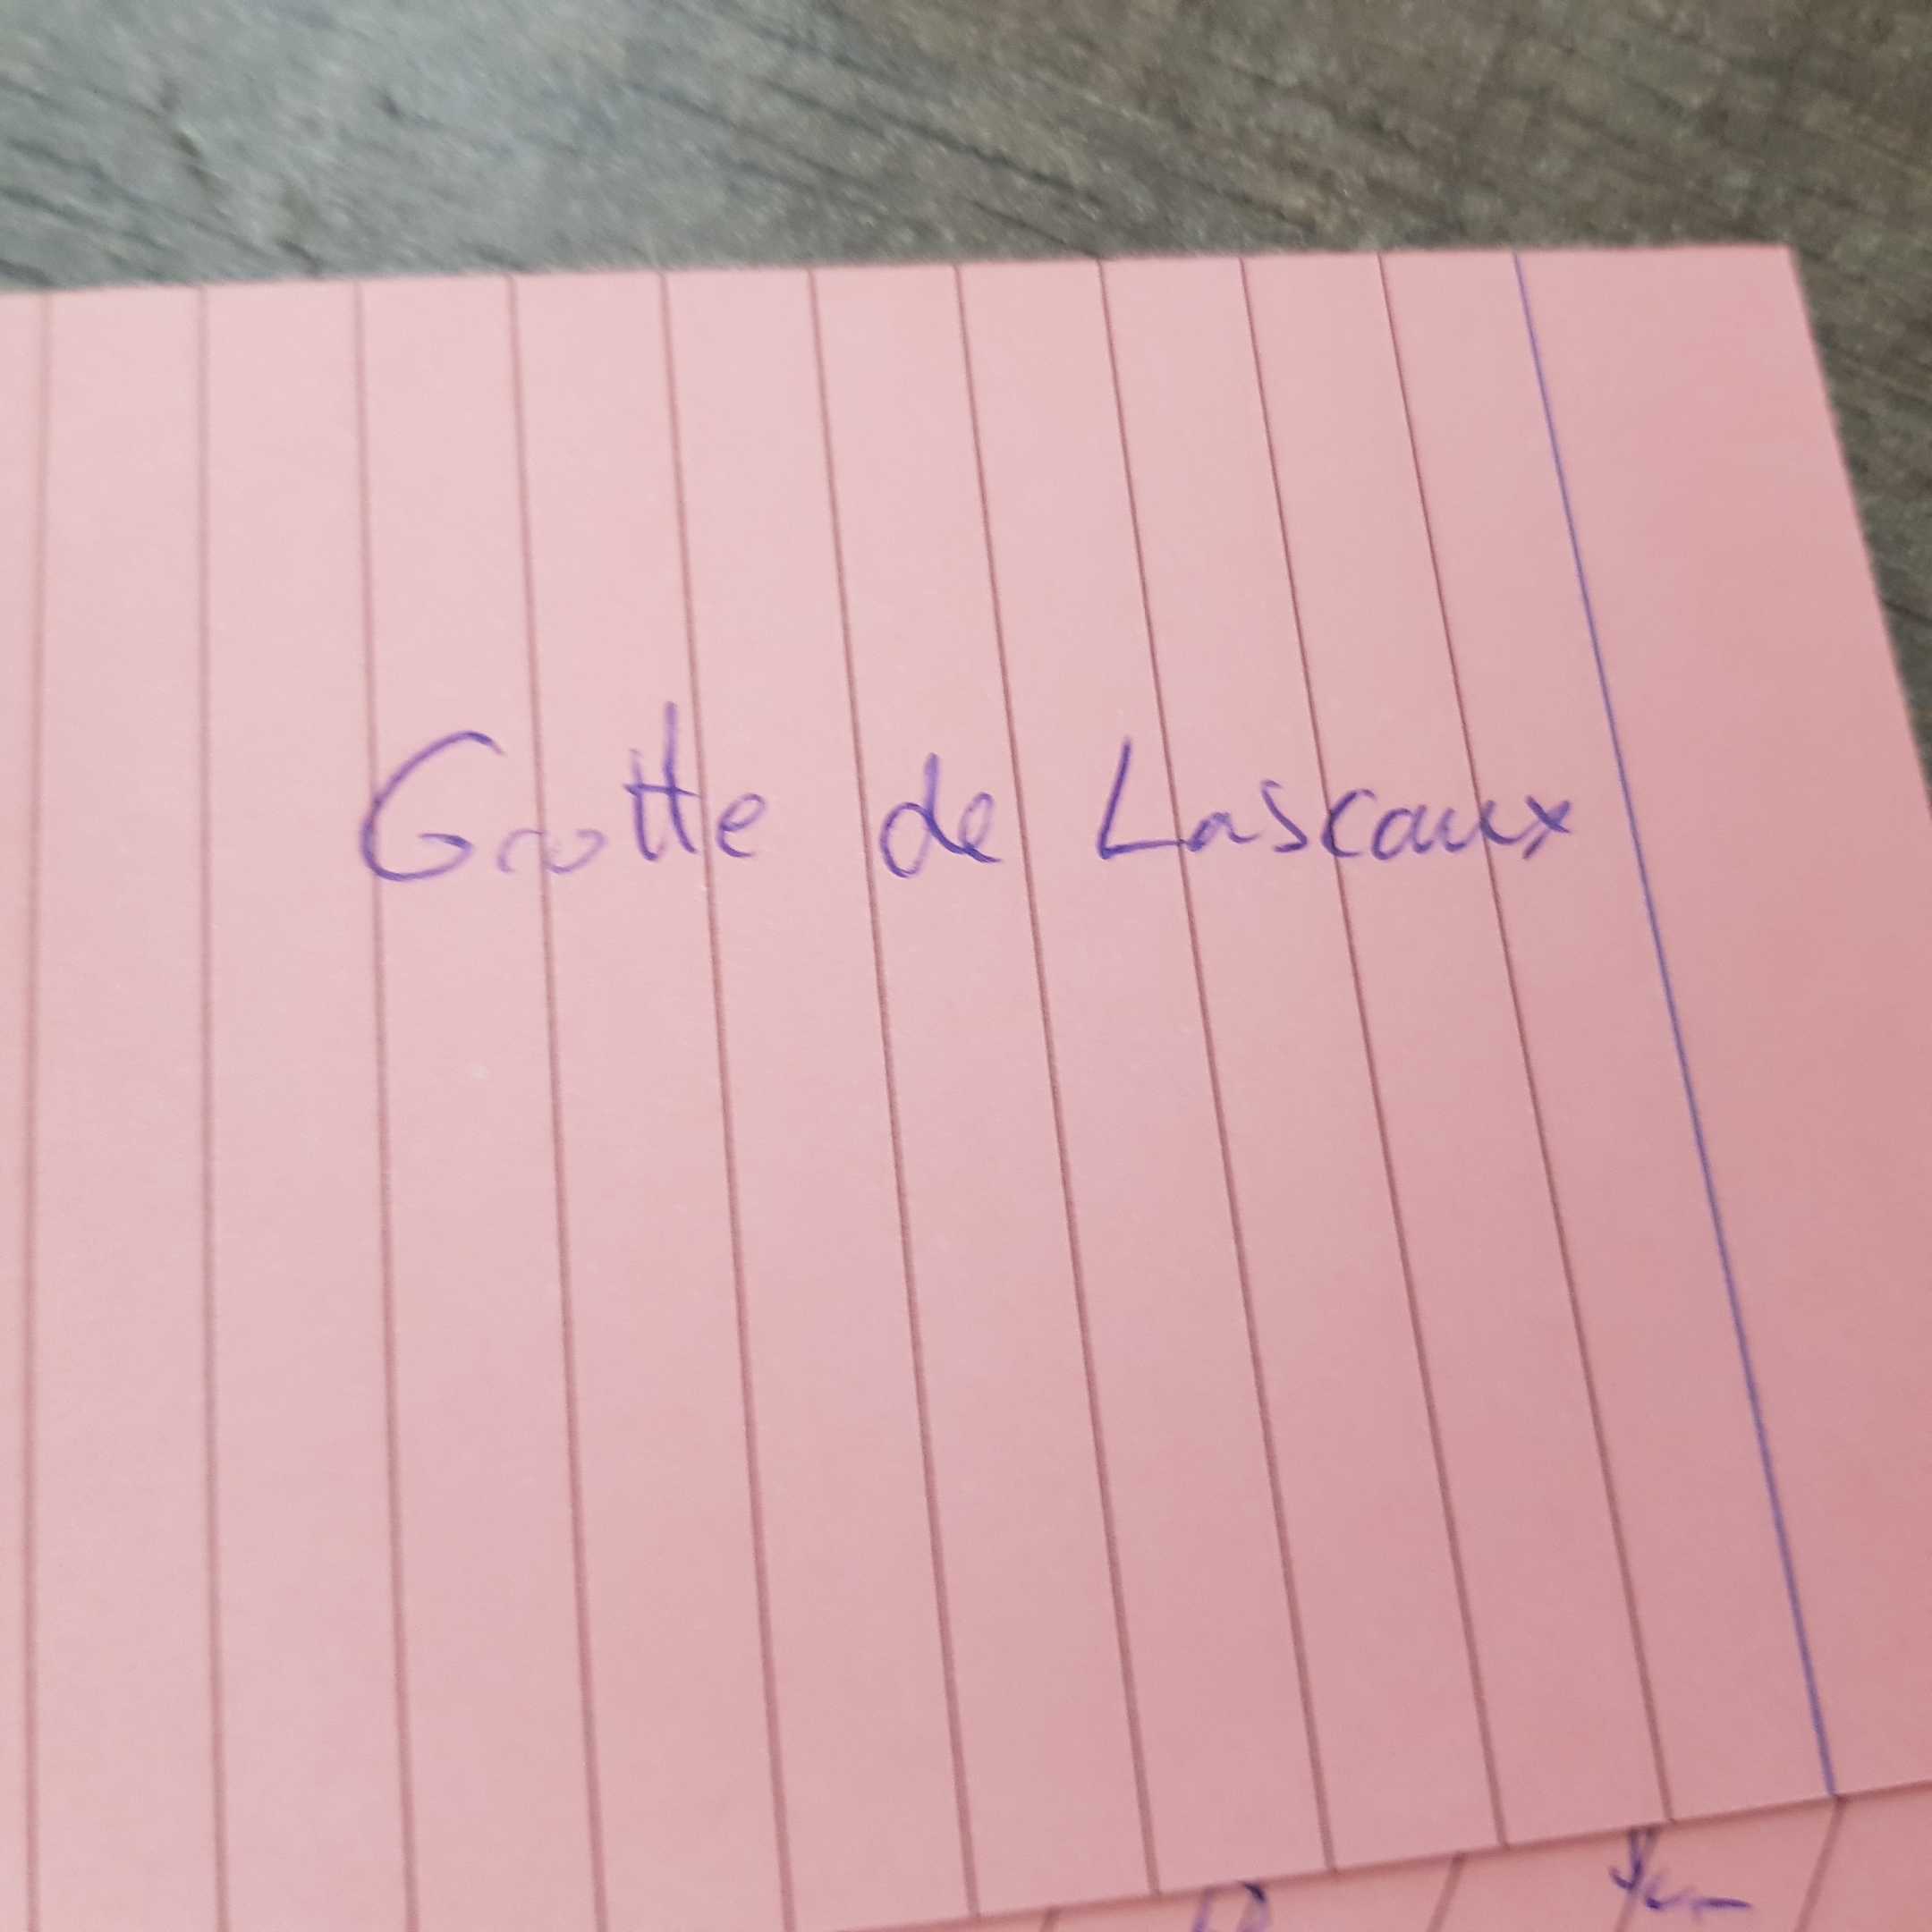 Grotte de Lascaux